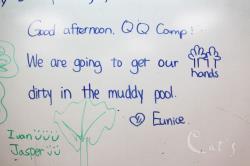 Good afternoon, QQ Camp!
We are going to get our hands
dirty in the muddy pool.
Eunice.
Ivan
Jasper
Cat's